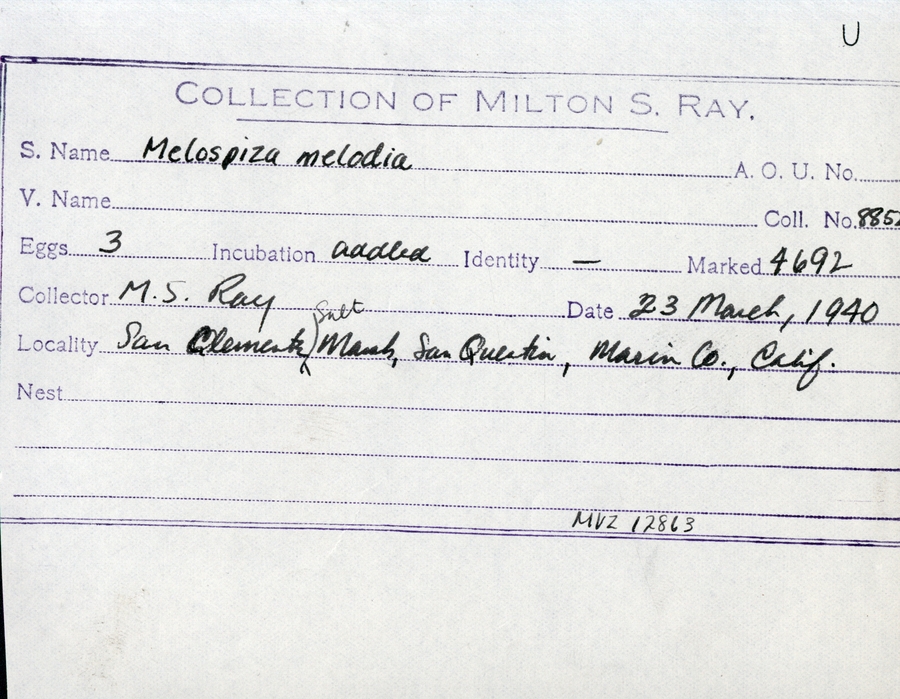 U
COLLECTION OF MILTON S. RAY.
S. Name Melospiza melodia A. O. U. No.
V. Name Coll. No. 8852
Eggs 3 Incubation addled Identity — Marked 4692
Collector M. S. Ray Date 23 March, 1940
Locality San Clemente Salt Marsh, San Quentin, Marin Co., Calif.
Nest
MVZ 12863